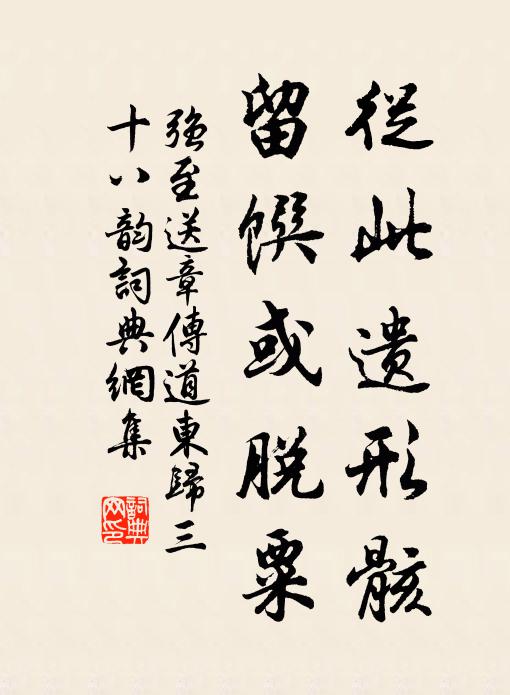 從此遺形骸
留饌或脱粟
強至送章傳道東歸三
十八韵詞典網集
詞典
网印